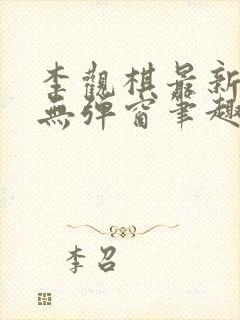 李觀棋最新
無彈窗筆趣
李召